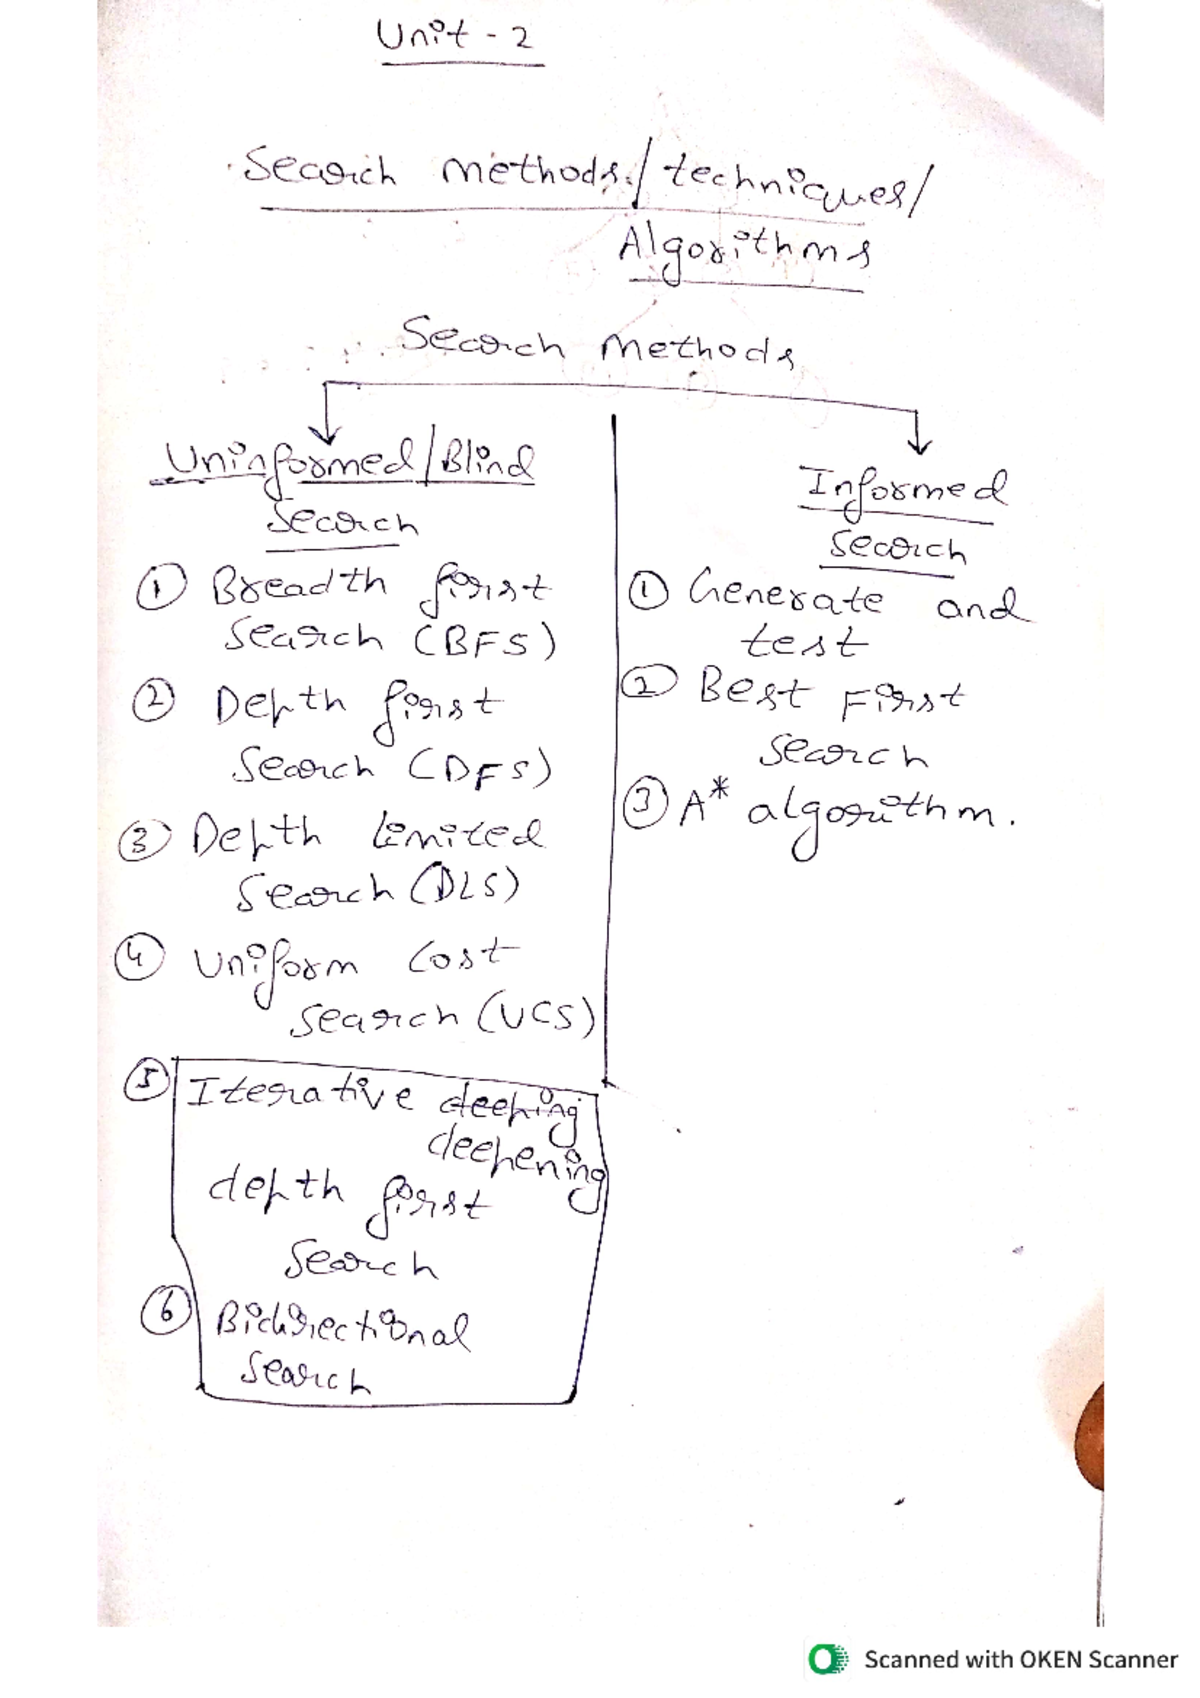 Unit - 2
Search methods/techniques/
Algorithms
Search methods
Uninformed/Blind
Search
① Breadth first
Search (BFS)
② Depth first
Search (DFS)
③ Depth Limited
Search (DLS)
④ Uniform Cost
Search (UCS)
⑤ Iterative deeping
deepening
depth first
Search
⑥ Bidirectional
Search
Informed
Search
① Generate and
test
② Best First
Search
③ A* algorithm.
Scanned with OKEN Scanner